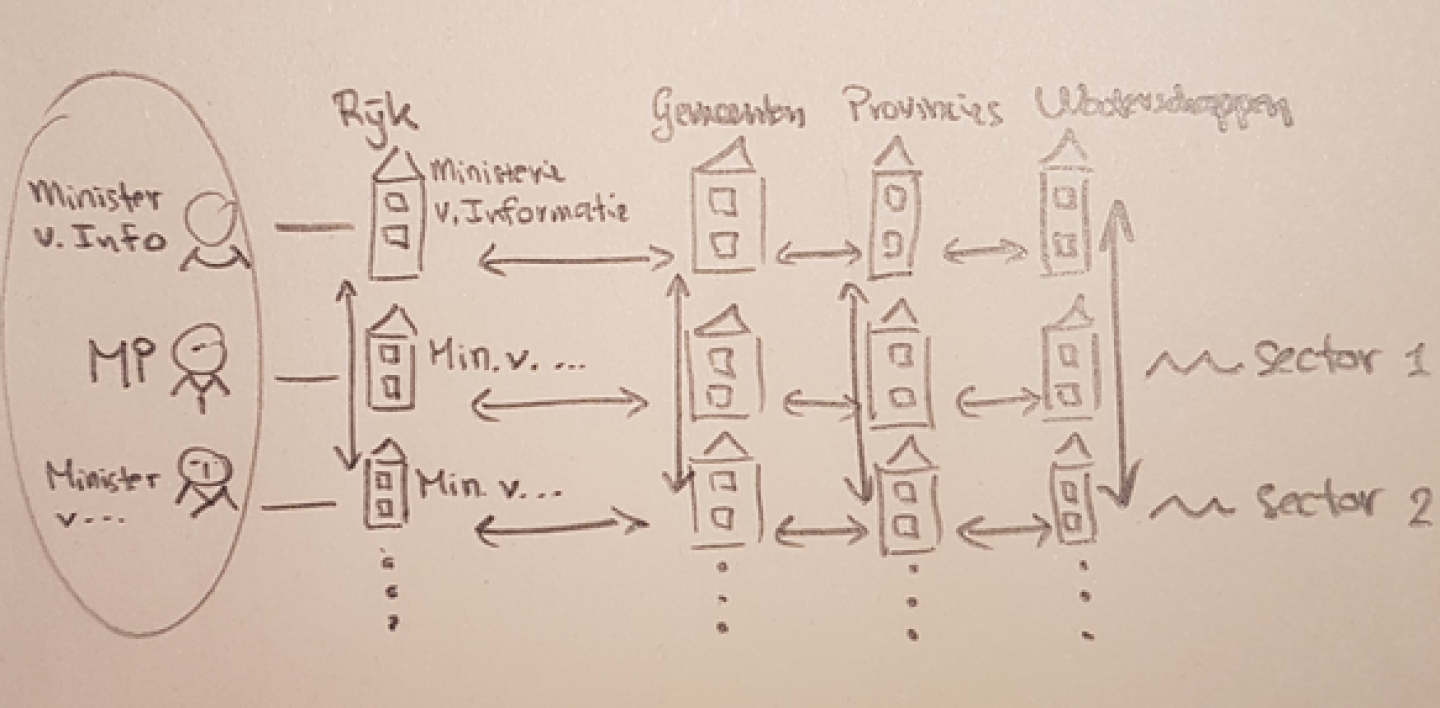 Rijk Gemeenten Provincies Waterschappen
Minister
v. Info
Ministerie
v. Informatie
MP
Min. v. ...
sector 1
Minister
v...
Min. v...
sector 2